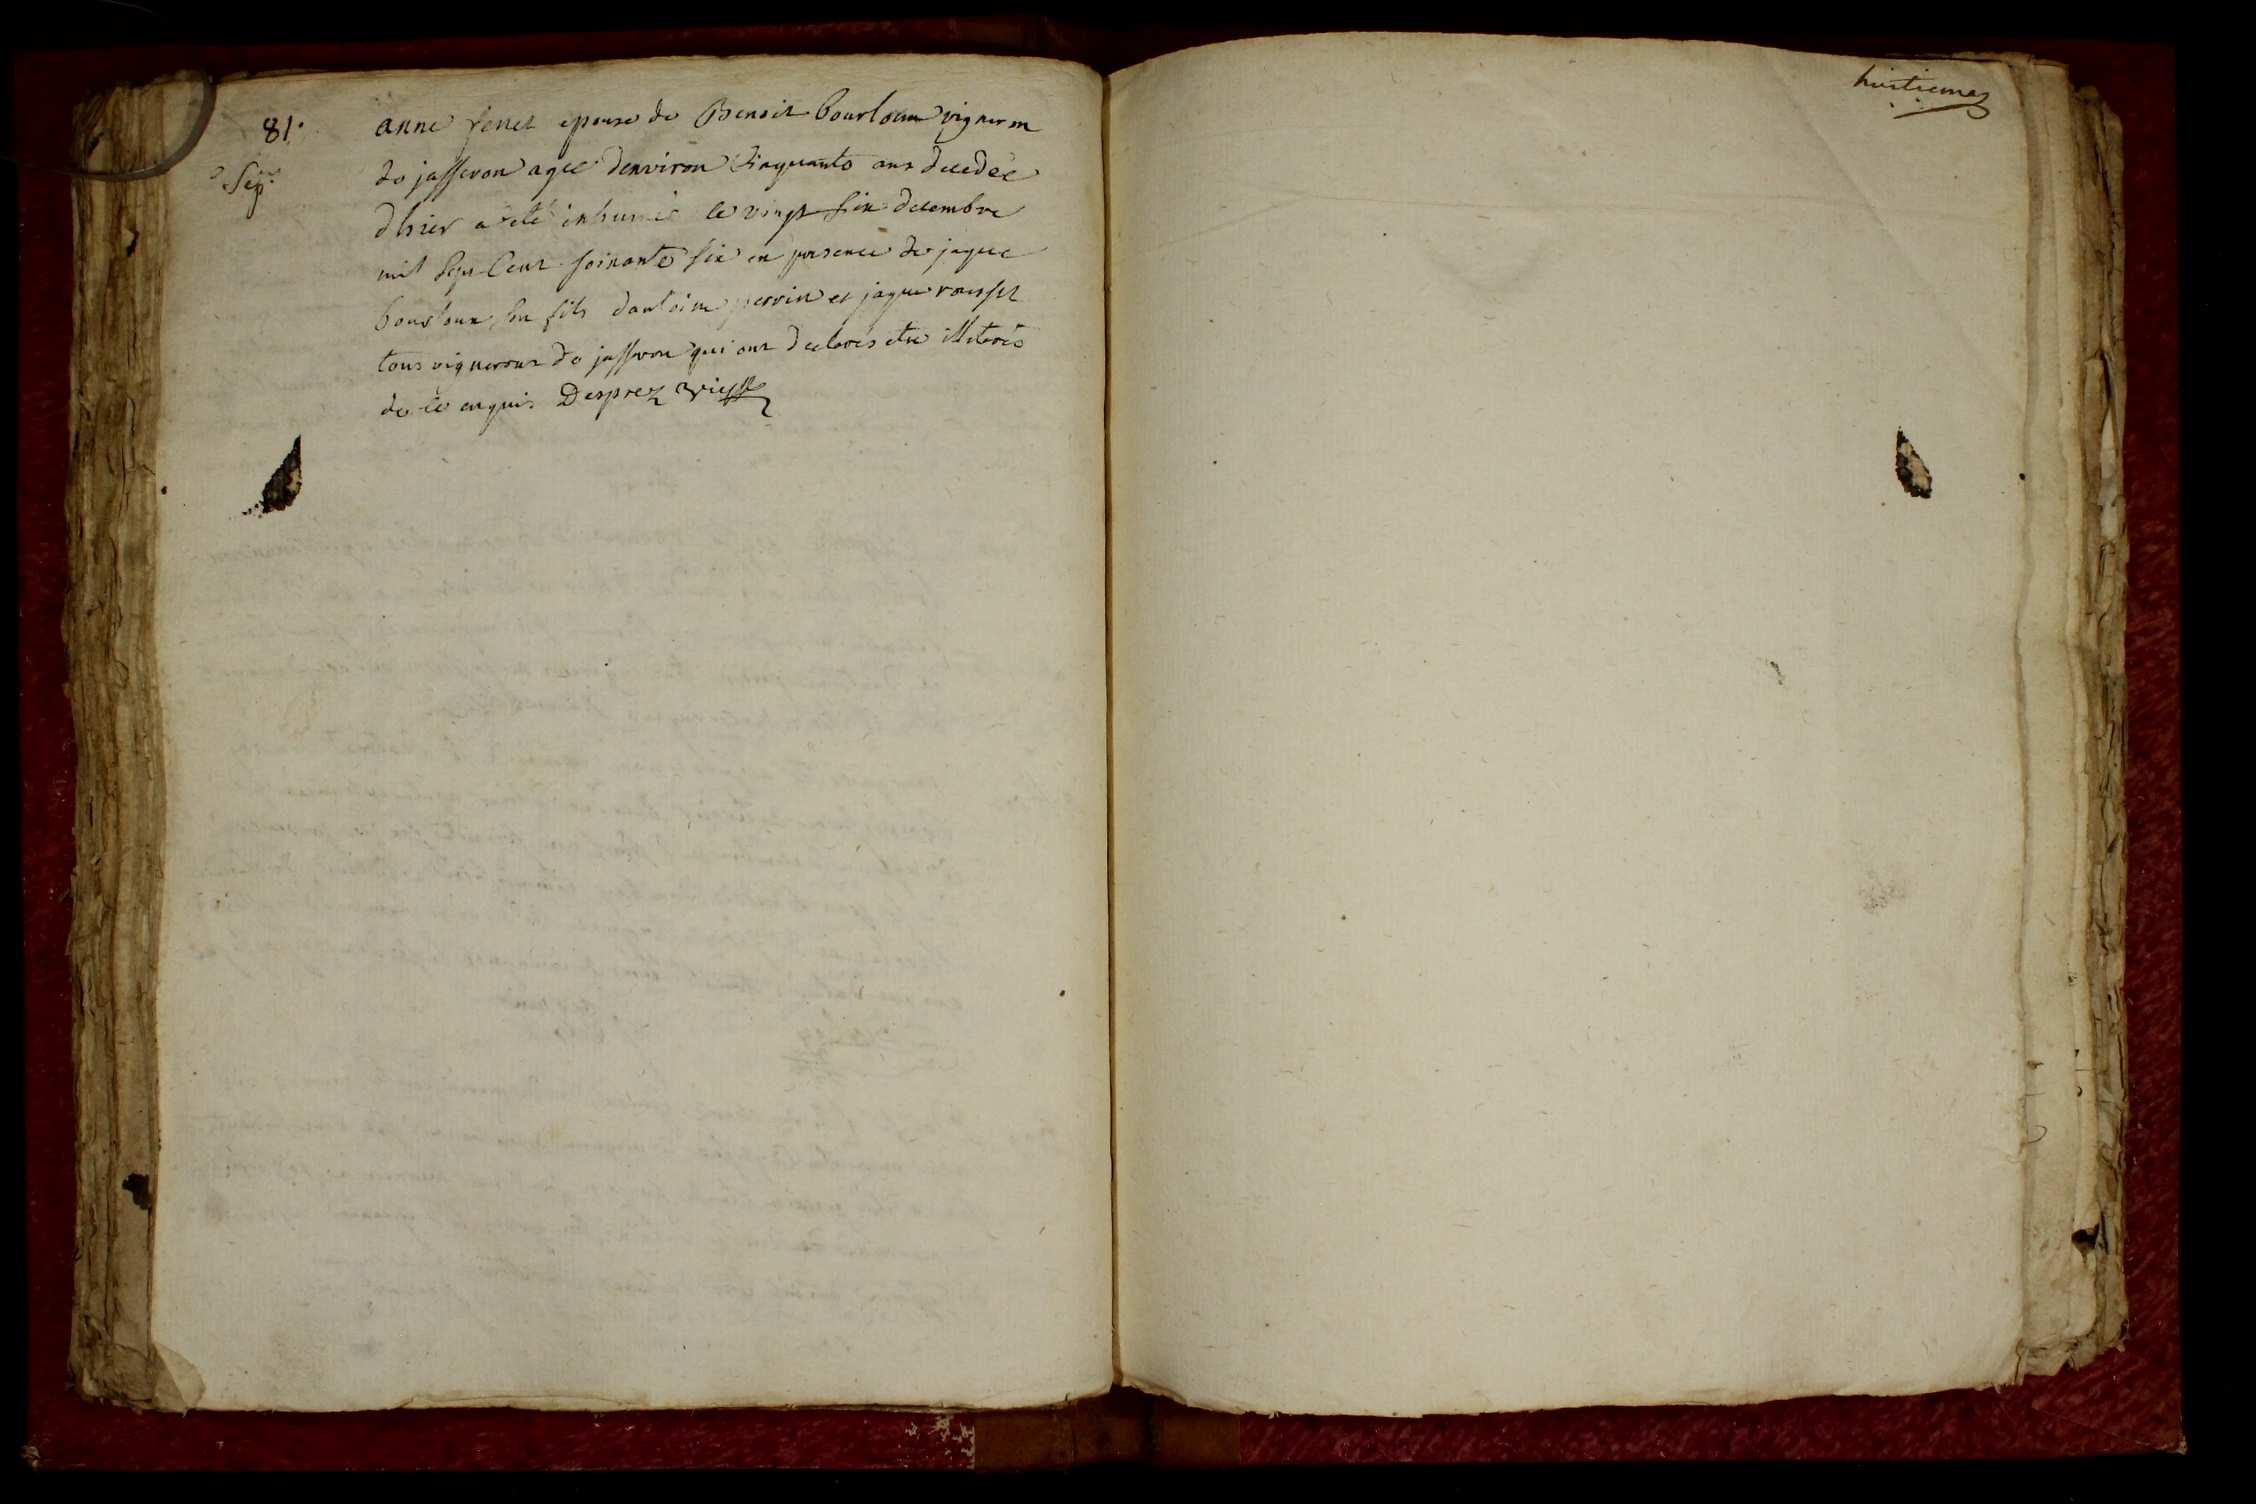 81.
Sep.re
anne fenet epouse de Benoit bourloux vigneron
de jasseron agee denviron Cinquante ans decedée
dhier a eté inhumée le vingt six decembre
mil sept Cent soixante six en presence de jaque
bourloux son fils dantoine perrin et jaque rousset
tous vignerons de jasseron qui ont declarés etre illiterés
de ce enquis Desprez vic
huitieme